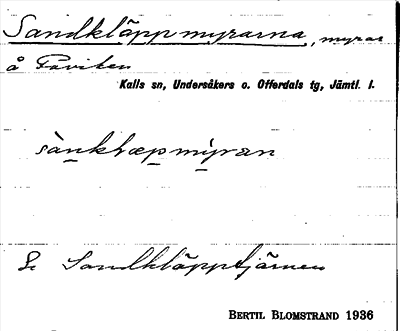 Sandkläppmyrarna, myrar
å Raviken
Kalls sn, Undersåkers o. Offerdals tg, Jämtl. l.
sànkhæpmỳran
Se Sandkläpptjärnen
BERTIL BLOMSTRAND 1936